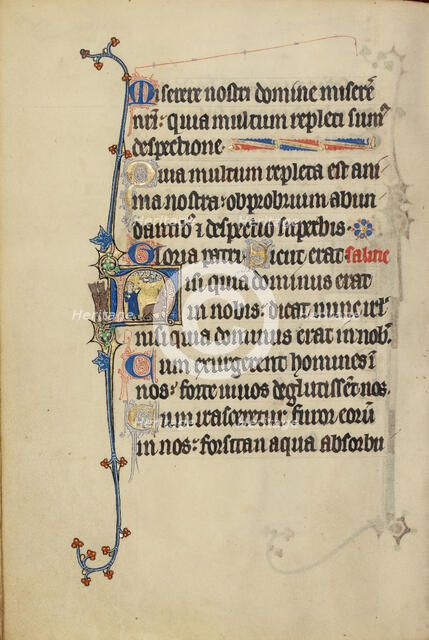 Miserere nostri domine miserē
nr̄i: quia multum repleti sum9
despectione
Quia multum repleta est ani
ma nostra: obprobrium abun
dantib9 ⁊ despectio superbis
Gloria patri. Sicut erat
isi quia dominus erat
in nobis: dicat nunc isrl:
nisi quia dominus erat in nob.
Cum exurgerent homines ī
nos: forte vivos deglutissēt nos.
Cum irasceretur furor eorū
in nos: forsitan aqua absorbu